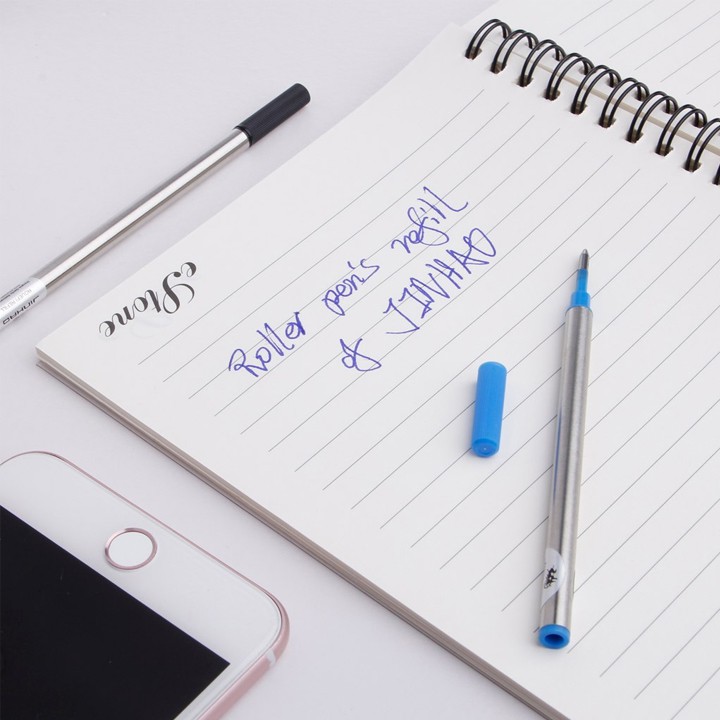 Roller pen's refill
of JINHAO
eStone
JINHAO